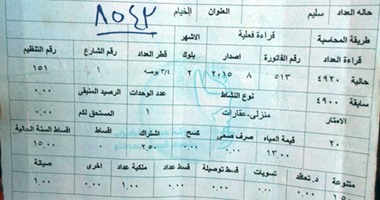 حاله العداد سليم العنوان الخيام ٨٥٤٢
طريقة المحاسبة قراءة فعلية الاشهر
قراءة العداد رقم الفاتورة اصدار بلوك قطر العداد رقم الشارع رقم التنظيم
حالية ٤٩٢٠ ٥١٣ ٨ ٢٠١٥ ٢ ٣/٤ بوصه ١ ١٥١
سابقة ٤٩٠٠ نوع النشاط عدد الوحدات الرصيد المتبقى ٠.٠٠
الامتار منزلى-عقارات ١ المستحق لكم
٢٠ قيمة المياه صرف صحى كسح اشتراك اقساط اقساط السنة الحالية
١٣.٠٠ ٢.٥٠ ١٥.٠٠
متنوعة د.تعاقد تسويات قسط توصيلة قسط عداد ملكية عداد اخرى صيانة
١.٥٠ ٠.٠٠ ٠.٠٠ ٠.٠٠ ٠.٠٠ ١.٠٠ ١.٠٠